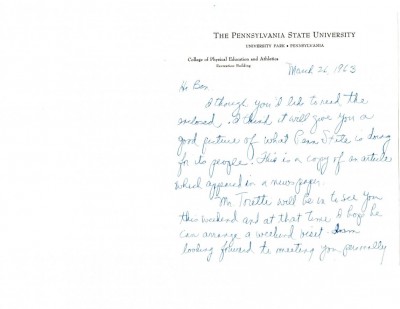 THE PENNSYLVANIA STATE UNIVERSITY
UNIVERSITY PARK • PENNSYLVANIA
College of Physical Education and Athletics
Recreation Building
March 26, 1963
Hi
I though you'd like to read the
enclosed. I think it will give you a
good picture of what Penn State is doing
for its people. This is a copy of an article
which appeared in a newspaper.
Mr. will be in to see you
this weekend and at that time I hope he
can arrange a weekend visit. I am
looking forward to meeting you personally